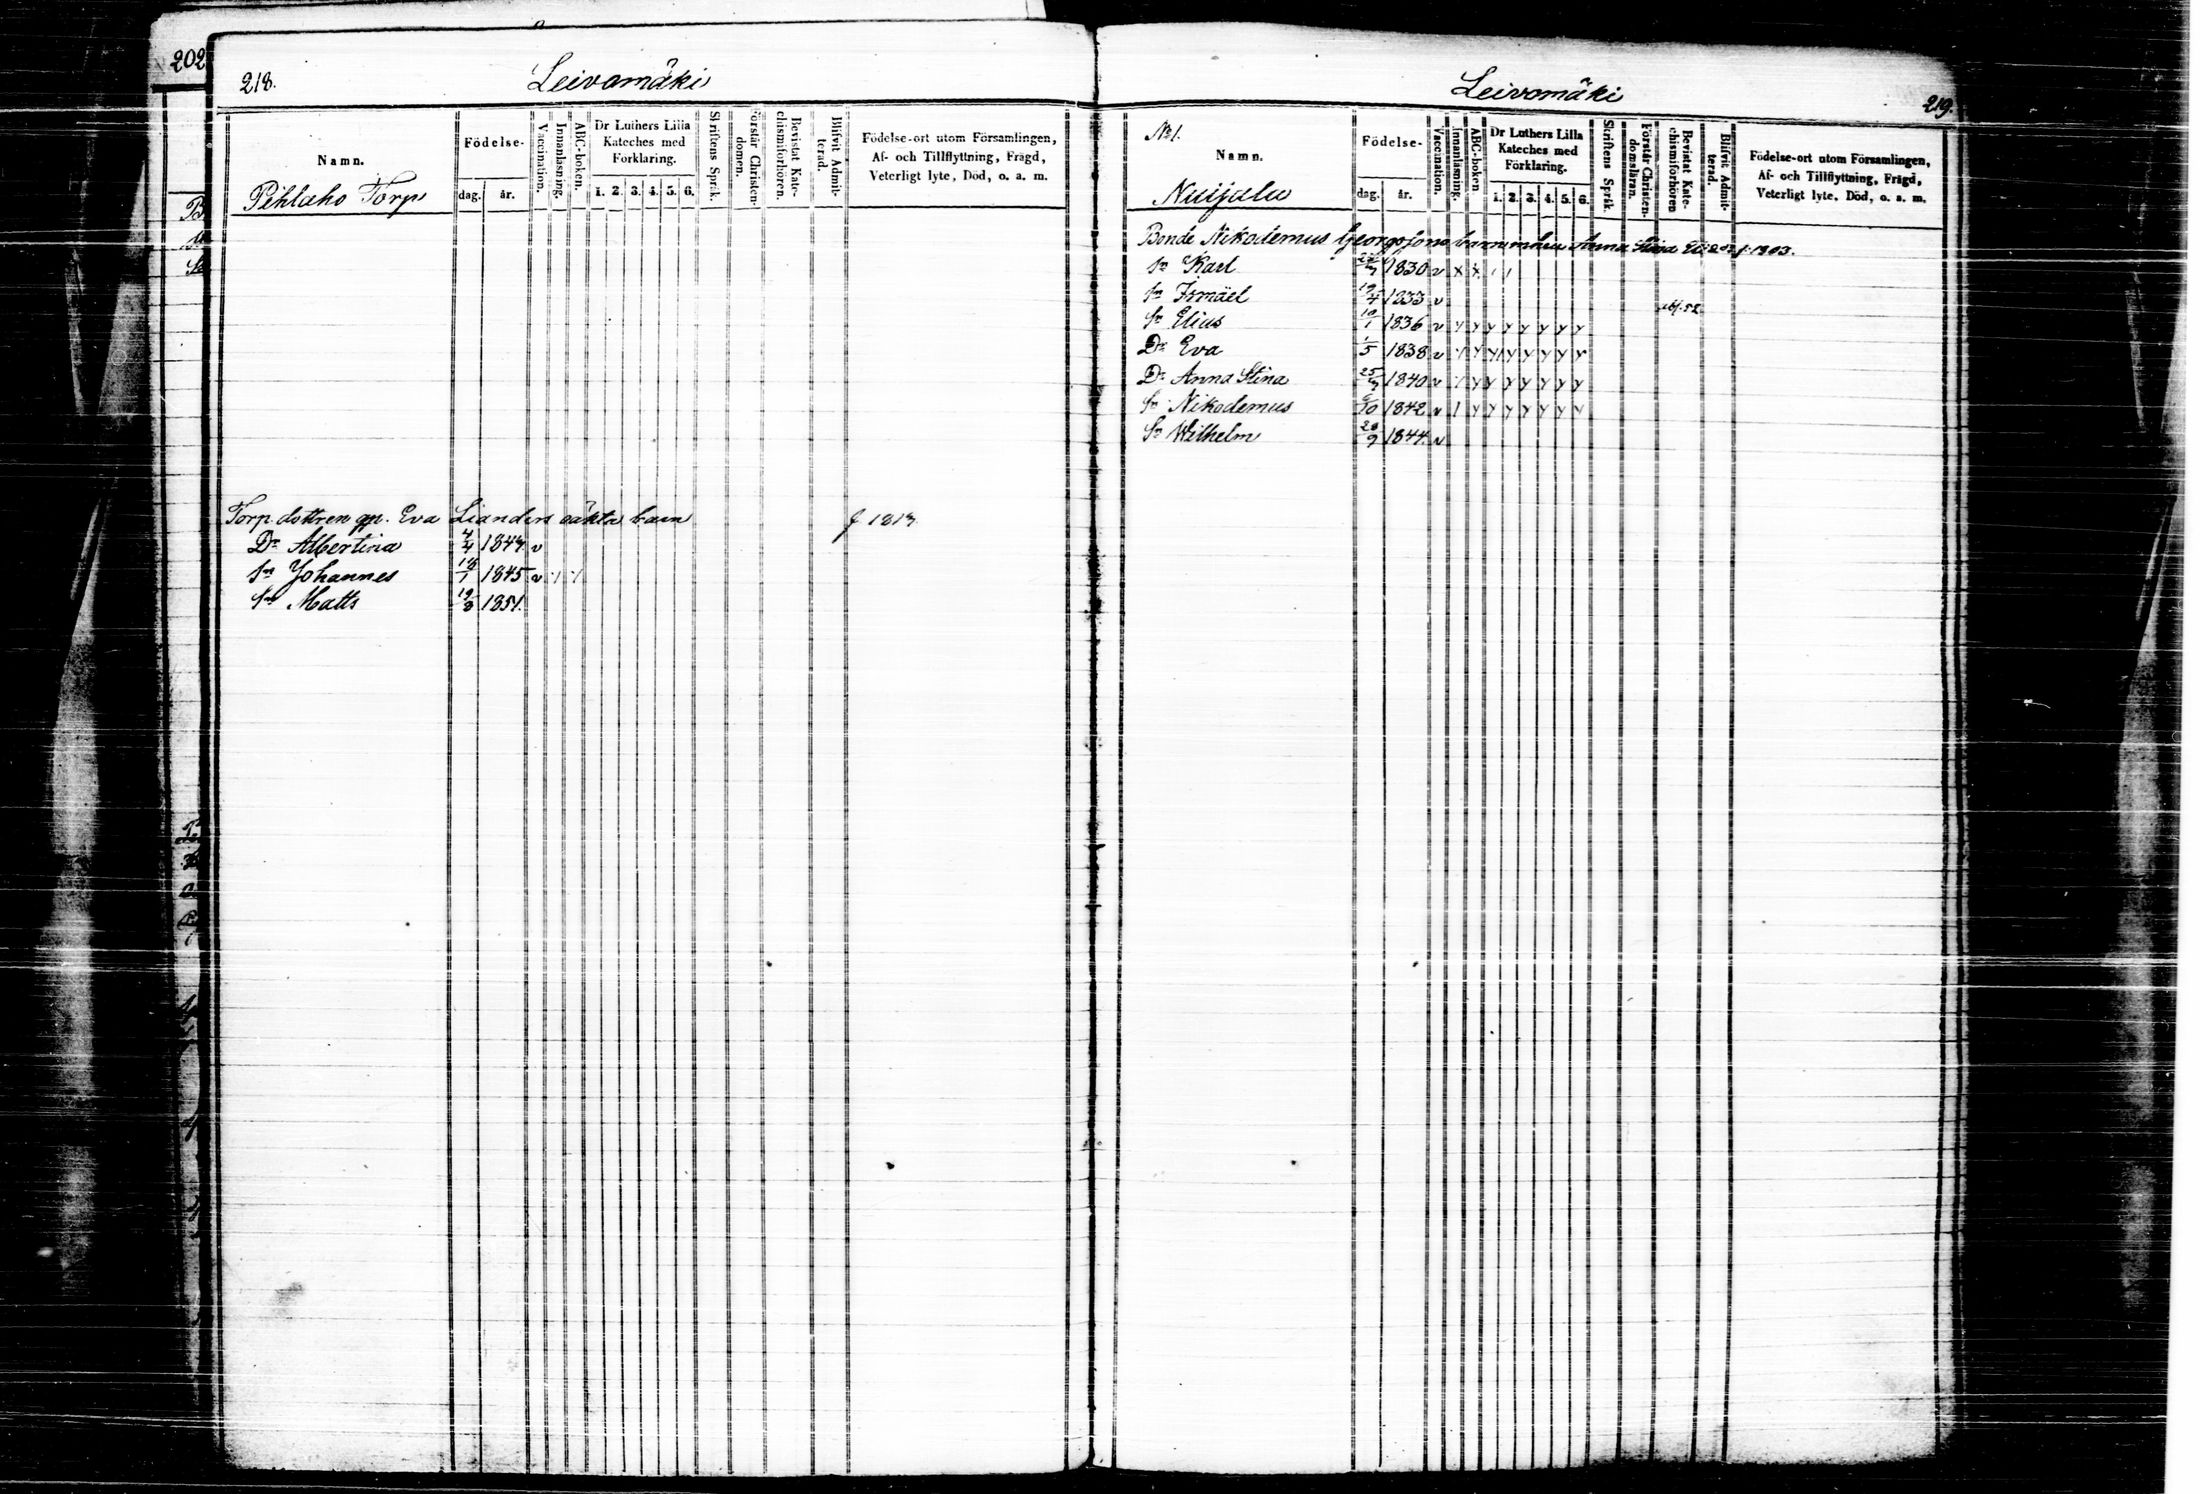 202
218.
Leivomäki
Namn.
Födelse-
dag. år.
Vaccination.
Innanläsning.
ABC-boken.
Dr Luthers Lilla
Kateches med
Förklaring.
1. 2. 3. 4. 5. 6.
Skriftens Språk.
Förstår Christen-
domen.
Bevistat Kate-
chismiförhören.
Blifvit Admit-
terad.
Födelse-ort utom Församlingen,
Af- och Tillflyttning, Frägd,
Veterligt lyte, Död, o. a. m.
Pihlaho Torp
Torp. dottren Eva Lianders oäkta barn
Dr Albertina 4/4 1844 v
Sn Johannes 18/1 1845 v
Sn Matts 19/8 1851.
Leivomäki
219.
No 1.
Namn.
Födelse-
dag. år.
Vaccination.
Innanläsning.
ABC-boken
Dr Luthers Lilla
Kateches med
Förklaring.
1. 2. 3. 4. 5. 6.
Skriftens Språk.
Förstår Christen-
domsläran.
Bevistat Kate-
chismiförhören
Blifvit Admit-
terad.
Födelse-ort utom Församlingen,
Af- och Tillflyttning, Frägd,
Veterligt lyte, Död, o. a. m.
Nuijala
Bonde Nikodemus Georgsons barn Anna Stina f. 1803.
Sn Karl 1830 v x x
Sn Ismäel 19/4 1833 v
Sn Elias 10/1 1836 v
Dr Eva 1838 v
Dr Anna Stina 1840 v
Sn Nikodemus 1842 v
Sn Wilhelm 1844 v